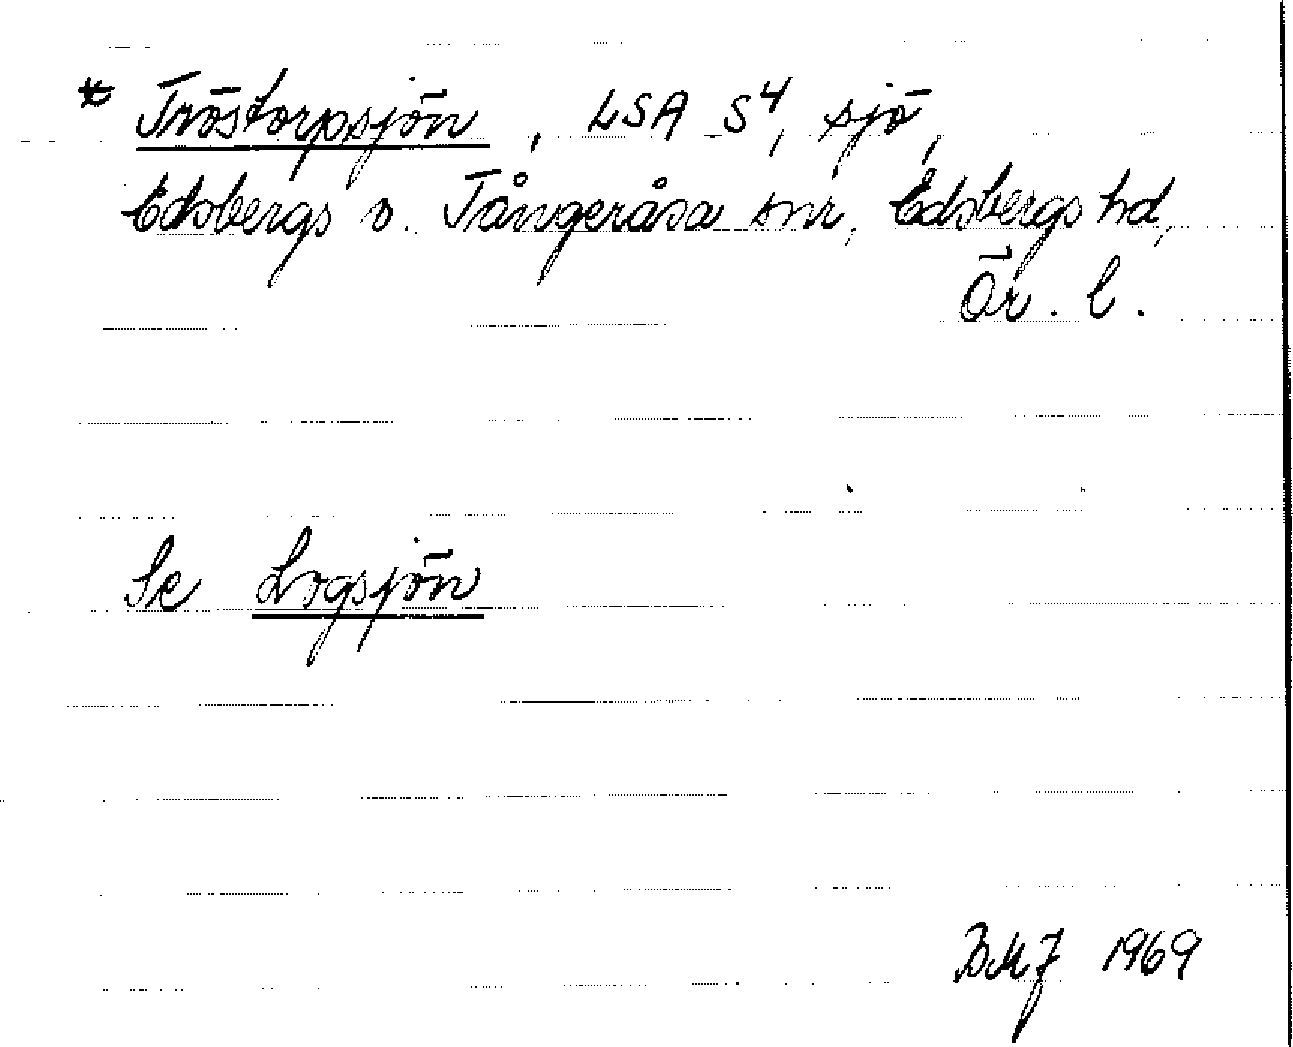 * Tröstorpsjön, LSA S4, sjö,
Edsbergs o. Tångeråsa snr, Edsbergs hd,
Ör. l.
Se Logsjön
BMJ 1969